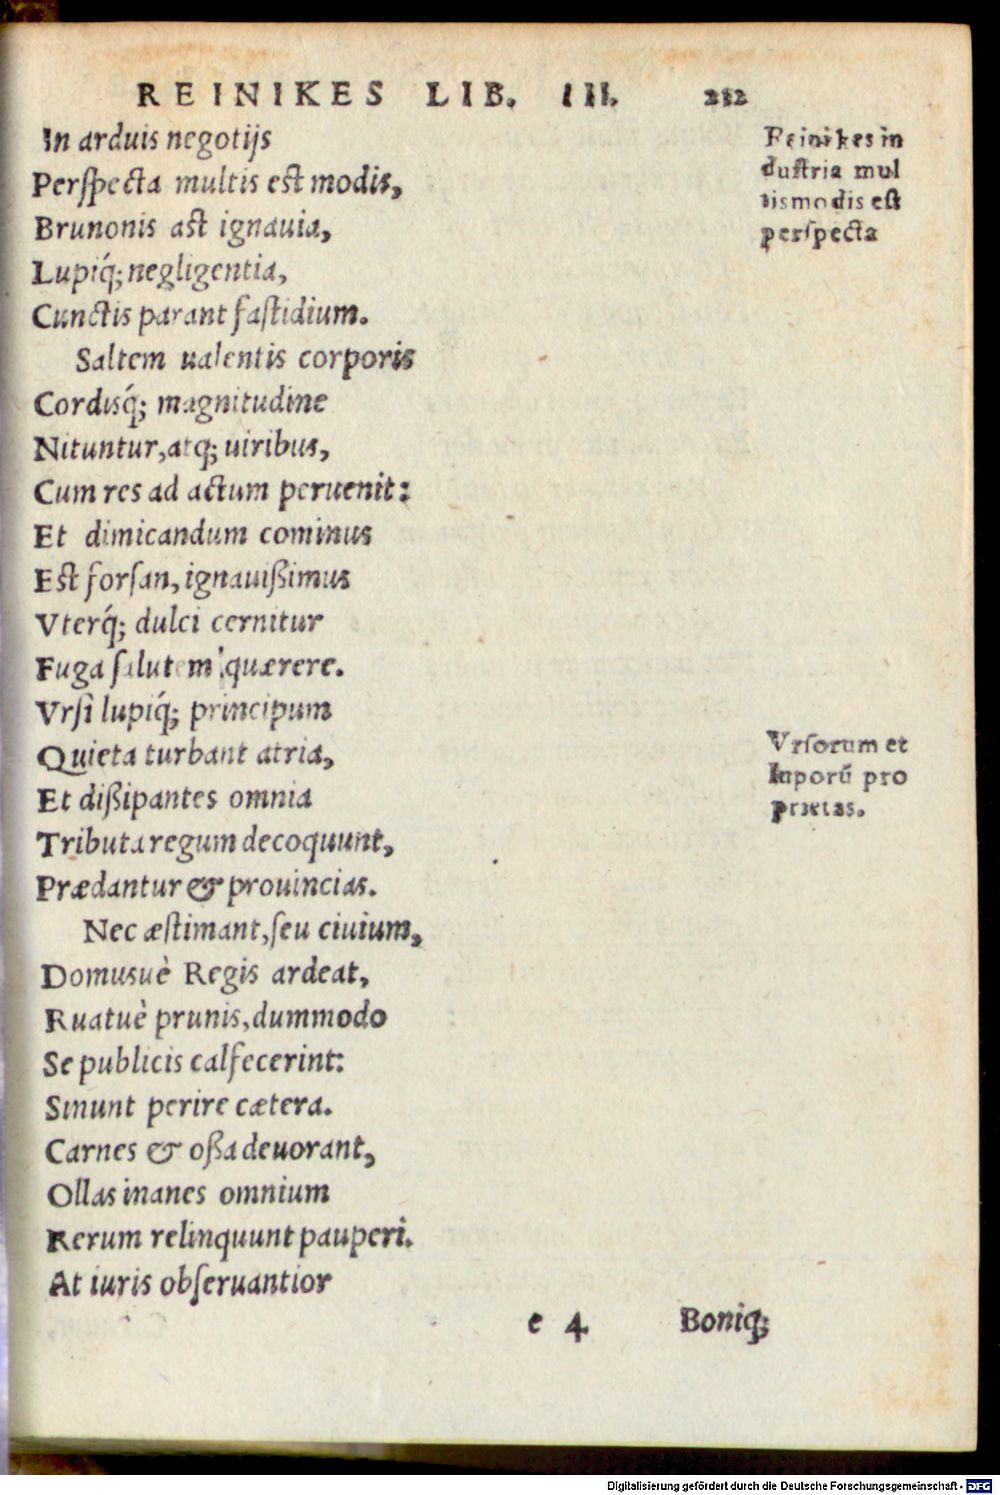 REINIKES LIB. III. 212
In arduis negotijs
Perſpecta multis est modis,
Brunonis ast ignauia,
Lupiq́; negligentia,
Cunctis parant faſtidium.
Saltem ualentis corporis
Cordisq́; magnitudine
Nituntur, atq; uiribus,
Cum res ad actum peruenit:
Et dimicandum cominus
Est forſan, ignauißimus
Vterq́; dulci cernitur
Fuga ſalutem quærere.
Vrſi lupiq́; principum
Quieta turbant atria,
Et dißipantes omnia
Tributa regum decoquunt,
Prædantur & prouincias.
Nec æſtimant, ſeu ciuium,
Domusuè Regis ardeat,
Ruatuè prunis, dummodo
Se publicis calfecerint:
Sinunt perire cætera.
Carnes & oßa deuorant,
Ollas inanes omnium
Rerum relinquunt pauperi.
At iuris obſeruantior
e 4 Boniq́;
Reinikes in
duſtria mul
tismodis eſt
perſpecta
Vrſorum et
luporũ pro
prietas.
Digitalisierung gefördert durch die Deutsche Forschungsgemeinschaft - DFG